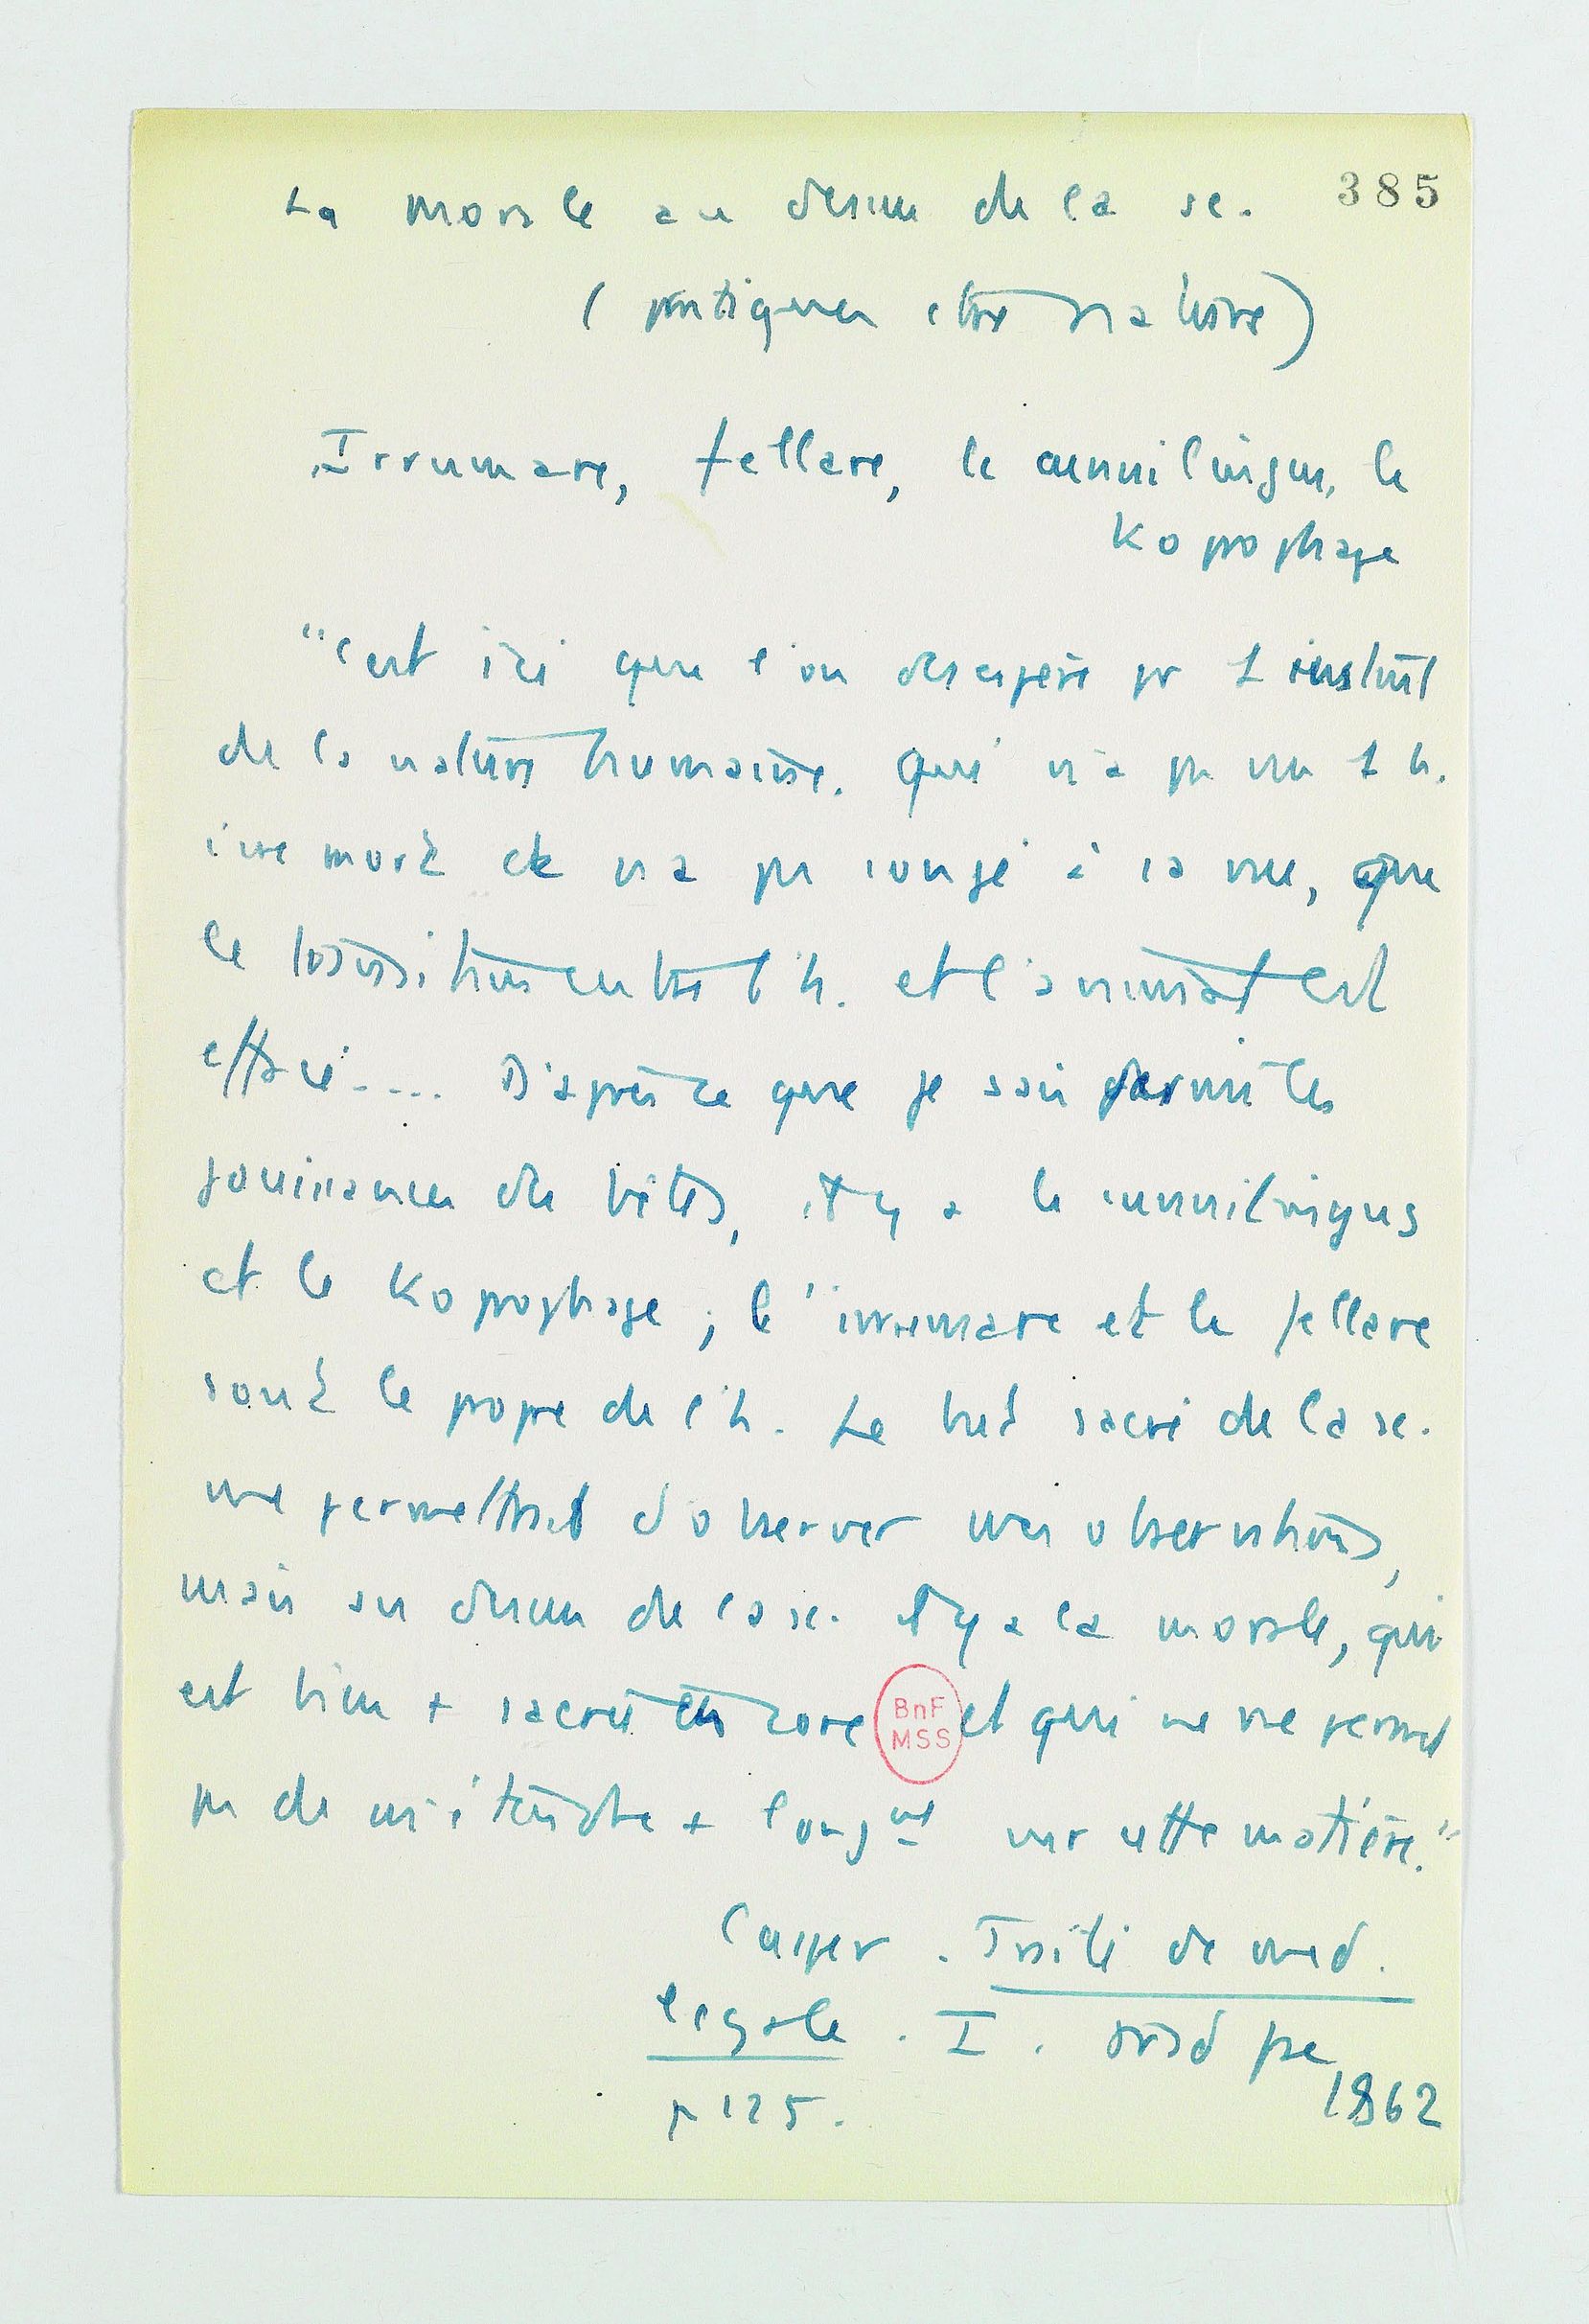 La morale au dessus de la sc.
385
(pratiques ctre nature)
Irrumare, fellare, le cunnilingus, le
Koprophage
"C'est ici que l'on desespère pr 1 instant
de la nature humaine. Qui n'a pas vu 1 h.
ivre mort et n'a pas songé à sa vue, que
la transition entre l'h. et l'animal est
effacé.... D'après ce que je sais parmi les
jouissances des bêtes, il y a le cunnilingus
et le Koprophage ; l'irrumare et le fellare
sont le propre de l'h. Le but sacré de la sc.
me permettrait d'observer mes observations,
mais au dessus de la sc. il y a la morale, qui
est bien + sacrée encore et qui ne me permet
pas de m'étendre + longmt sur cette matière."
BnF
MSS
Casper. Traité de med.
légale. I. trad fse
1862
p 125.